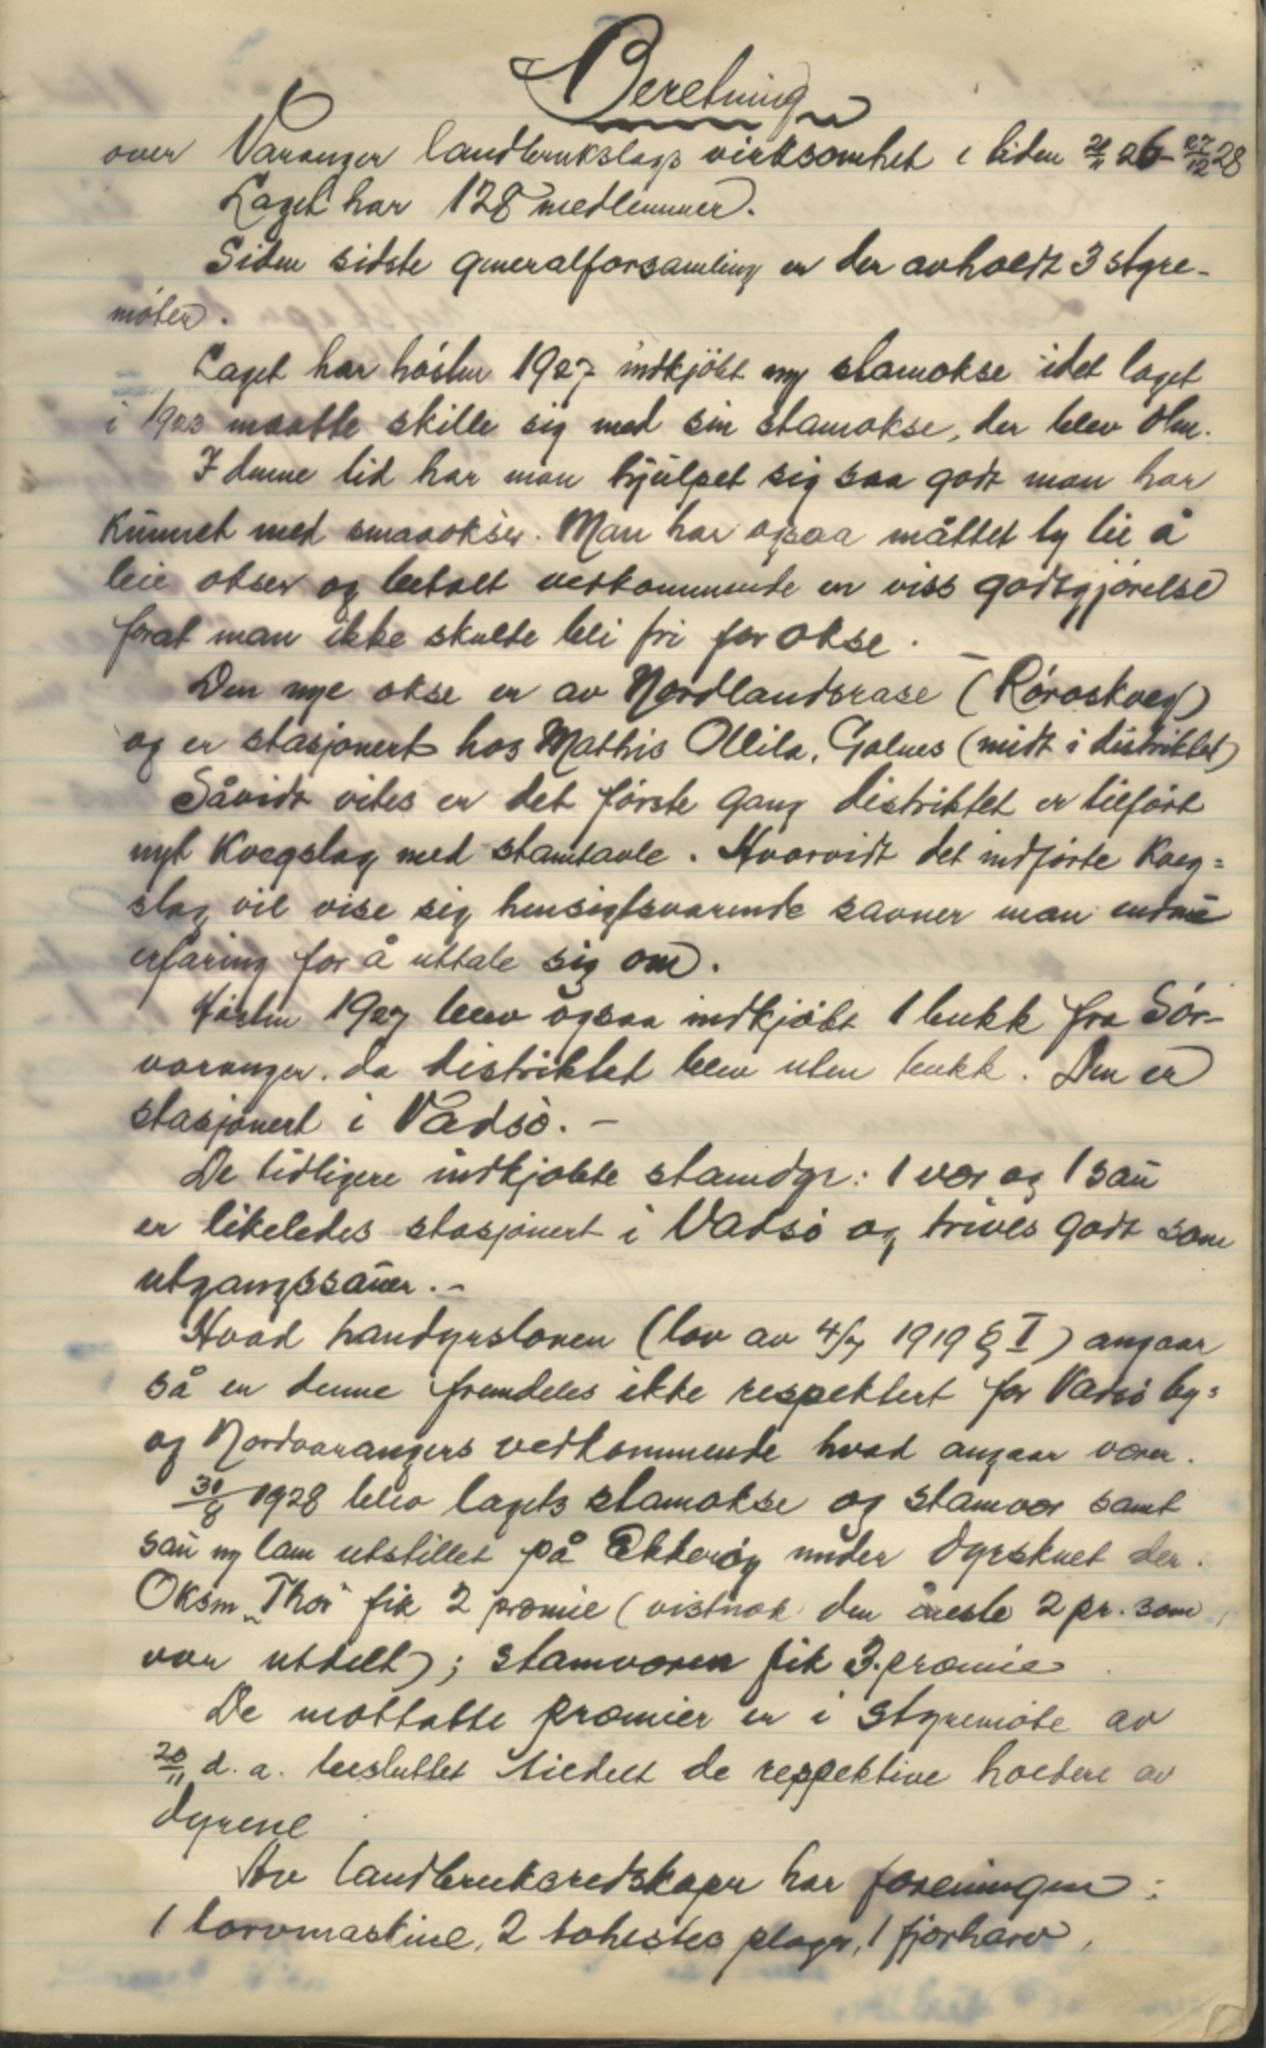 Beretning
over Varanger landbrukslags virksomhet i tiden 20/11 26 - 27/12 28
Laget har 128 medlemmer.
Siden sidste generalforsamling er der avholdt 3 styre-
möter.
Laget har hósten 1927 indkjöbt ny stamokse idet laget
i 1923 maatte skille sig med sin stamokse, der blev olm.
I denne tid har man hjulpet sig saa godt man har
kunnet med smaaokser. Man har ogsaa måttet ty til å
leie okser og betalt vedkommende en viss godtgjórelse
forat man ikke skulde bli fri for okse.
Den nye okse er av Nordlandsrase (Róroskveg)
og er stasjonert hos Mathis Ollila, Golnes (midt i distriktet)
Såvidt vites er det fórste gang distriktet er tilfórt
nyt kvegslag med stamtavle. Hvorvidt det indfórte kveg=
slag vil vise sig hensigtsvarende savner man endnu
erfaring for å uttale sig om.
Hósten 1927 blev ogsaa indkjóbt 1 bukk fra Sór-
varanger. da distriktet blev uten bukk. Den er
stasjonert i Vadsó. -
De tidligere indkjóbte stamdyr: 1 vær og 1 sau
er likeledes stasjonert i Vadsó og trives godt som
utgangssauer. -
Hvad handyrsloven (lov av 4/7 1919 § I) angaar
så er denne fremdeles ikke respektert for Vadsó by=
og Nordvarangers vedkommende hvad angaar værer.
30/8 1928 blev lagets stamokse og stamvær samt
sau m/ lam utstillet på Ekkeröy under dyrskuet der.
Oksen "Thor" fik 2 præmie (vistnok den eneste 2 pr. som
var utdelt); stamværen fik 3. præmie
De mottatte præmier er i styremóte av
20/11 d. a. besluttet tildelt de respektive holdere av
dyrene
Av landbruksredskaper har foreningen:
1 torvmaskine, 2 tohestes ploger, 1 fjærharv,